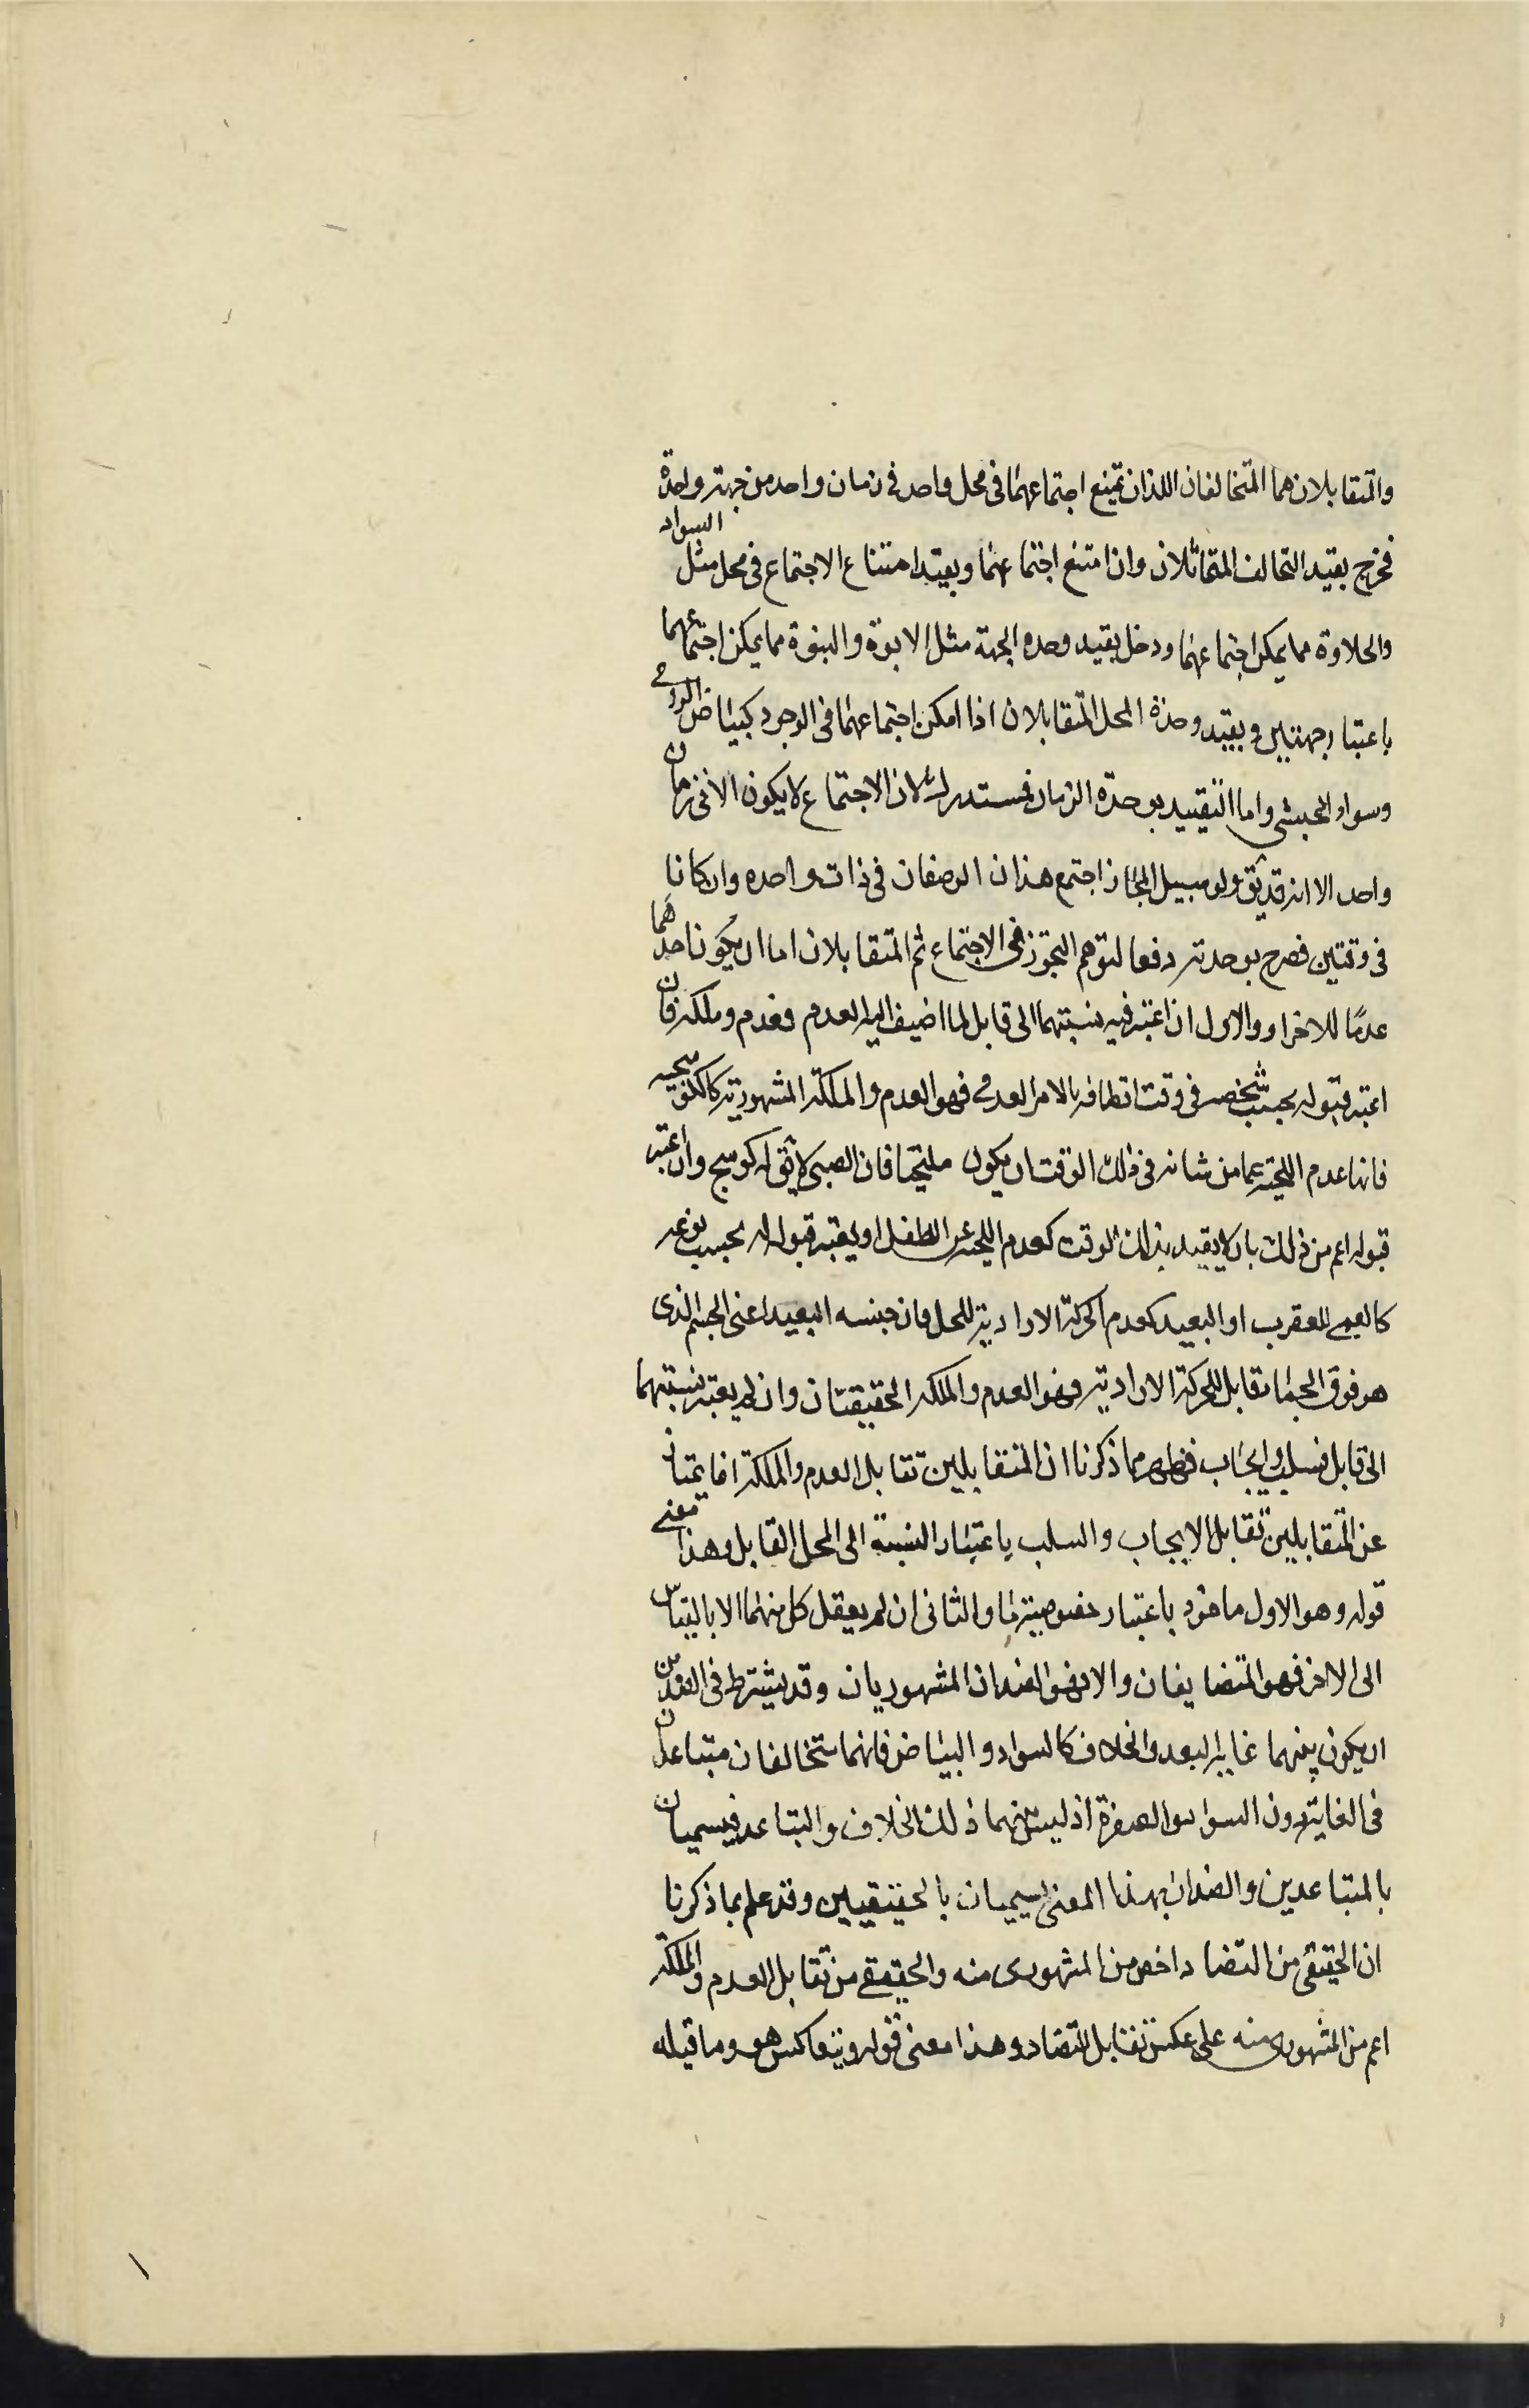 والمتقابلان هما المتخالفان اللذان يمتنع اجتماعهما فى محل واحد فى زمان واحد من جهة واحدة
فخرج بقيد التخالف المتماثلان وان امتنع اجتماعهما وبقيد امتناع الاجتماع فى محل مثل السواد
والحلاوة مما يمكن اجتماعهما ودخل بقيد وحدة الجهة مثل الابوة والبنوة مما يمكن اجتماعهما
باعتبار جهتين وبقيد وحدة المحل المتقابلان اذا امكن اجتماعهما فى الوجود كبياض الرومى
وسواد الحبشى واما التقييد بوحدة الزمان فمستدرك لان الاجتماع لا يكون الا فى زمان
واحد الا انه قد يق ولو سبيل المجاز اجتمع هذان الوصفان فى ذات واحده وان كانا
فى وقتين فصرح بوحدته دفعا لتوهم التجوز فى الاجتماع ثم المتقابلان اما ان يكون احدهما
عدمًا للاخر او والاول ان اعتبر فيه نسبتهما الى قابل لما اضيف اليه العدم فعدم وملكة فان
اعتبر قبوله بحسب شخصه فى وقت اتصافه بالامر العدمى فهو العدم والملكة المشهورية كالكوسجيه
فانها عدم اللحية عما من شانه فى ذلك الوقت ان يكون ملتحيا فان الصبى لا يق له كوسج وان اعتبر
قبوله اعم من ذلك بان لا يقيد بذلك الوقت كعدم اللحية عن الطفل او يعتبر قبوله له بحسب نوعه
كالعمى للعقرب او البعيد كعدم الحركة الارادية للجبل فان جنسه البعيد اعنى الجسم الذى
هو فوق الجماد قابل للحركة الارادية فهو العدم والملكة الحقيقيتان وان لم يعتبر نسبتهما
الى قابل فسلب وايجاب فظهر مما ذكرنا ان المتقابلين تقابل العدم والملكة انما يمتازان
عن المتقابلين تقابل الايجاب والسلب باعتبار النسبة الى المحل القابل وهذا معنى
قوله وهو الاول ماخوذ باعتبار خصوصية ما والثانى ان لم يعقل كل منهما الا بالقياس
الى الاخر فهو المتضايفان والا فهو الضدان المشهوريان وقد يشترط فى الضدين
ان يكون بينهما غاية البعد والخلاف كالسواد والبياض فانهما متخالفان متباعدان
فى الغاية دون السواد والصفرة اذ ليس بينهما ذلك الخلاف والتباعد فيسميان
بالمتباعدين والضدان بهذا المعنى يسميان بالحقيقيين وقد علم بما ذكرنا
ان الحقيقى من التضاد اخص من المشهورى منه والحقيقى من تقابل العدم والملكة
اعم من المشهورى منه على عكس تقابل التضاد وهذا معنى قوله ويتعاكس هو وما قبله